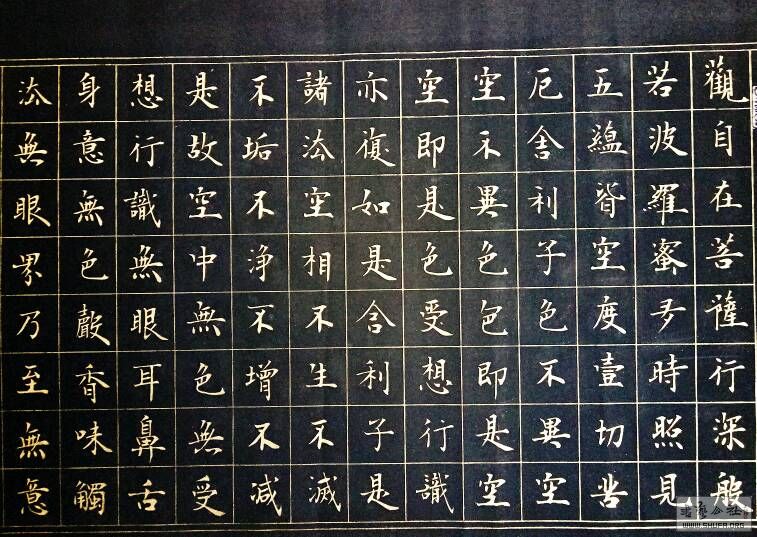 觀自在菩薩行深般
若波羅蜜多時照見
五蘊皆空度壹切苦
厄舍利子色不異空
空不異色色即是空
空即是色受想行識
亦復如是舍利子是
諸法空相不生不滅
不垢不淨不增不減
是故空中無色無受
想行識無眼耳鼻舌
身意無色聲香味觸
法無眼界乃至無意
WWW.SHUFA.ORG